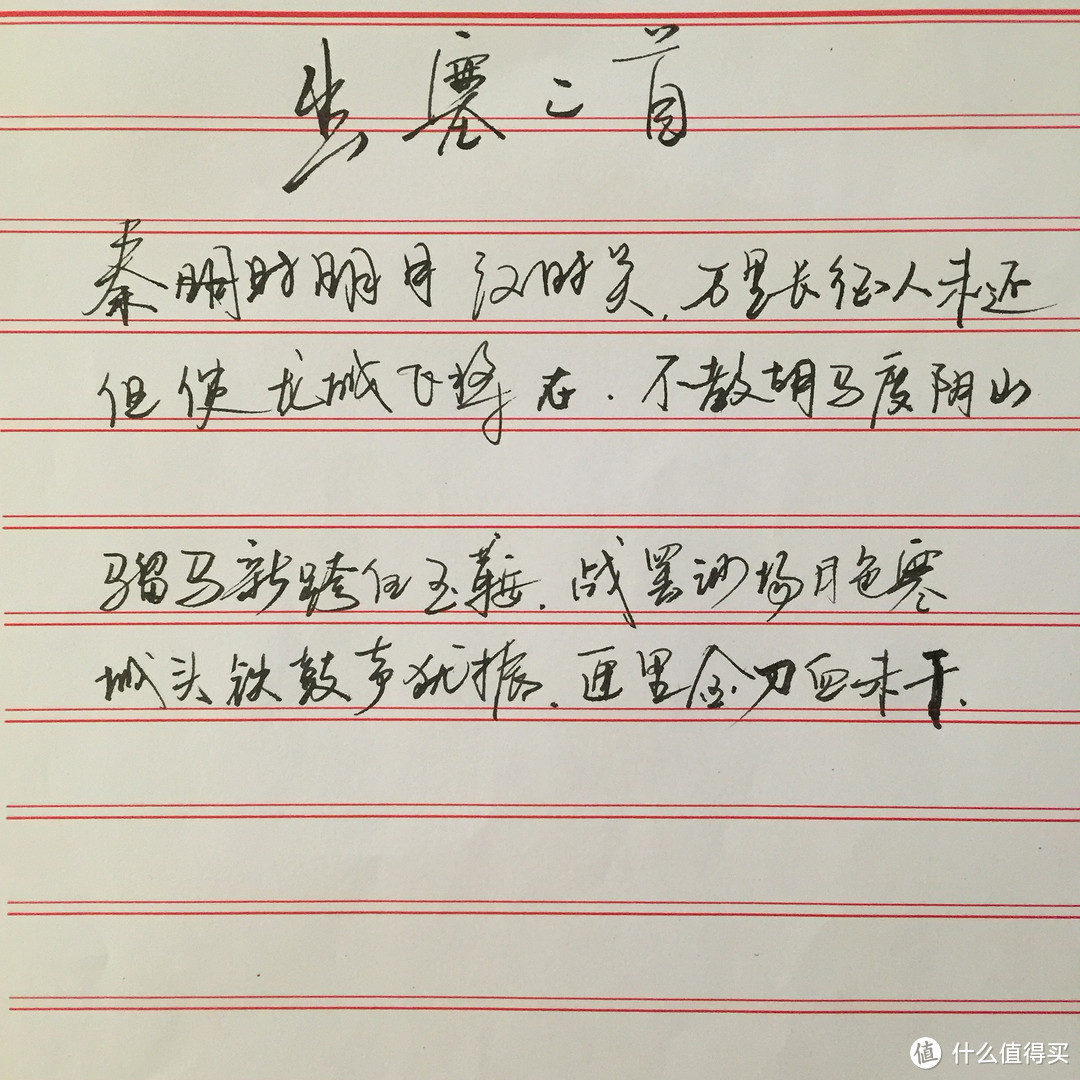 出塞二首
秦明时明月汉时关.万里长征人未还
但使龙城飞将在.不教胡马度阴山
骝马新跨玉鞍.战罢沙场月色寒
城头铁鼓声犹振.匣里金刀血未干.
值 什么值得买